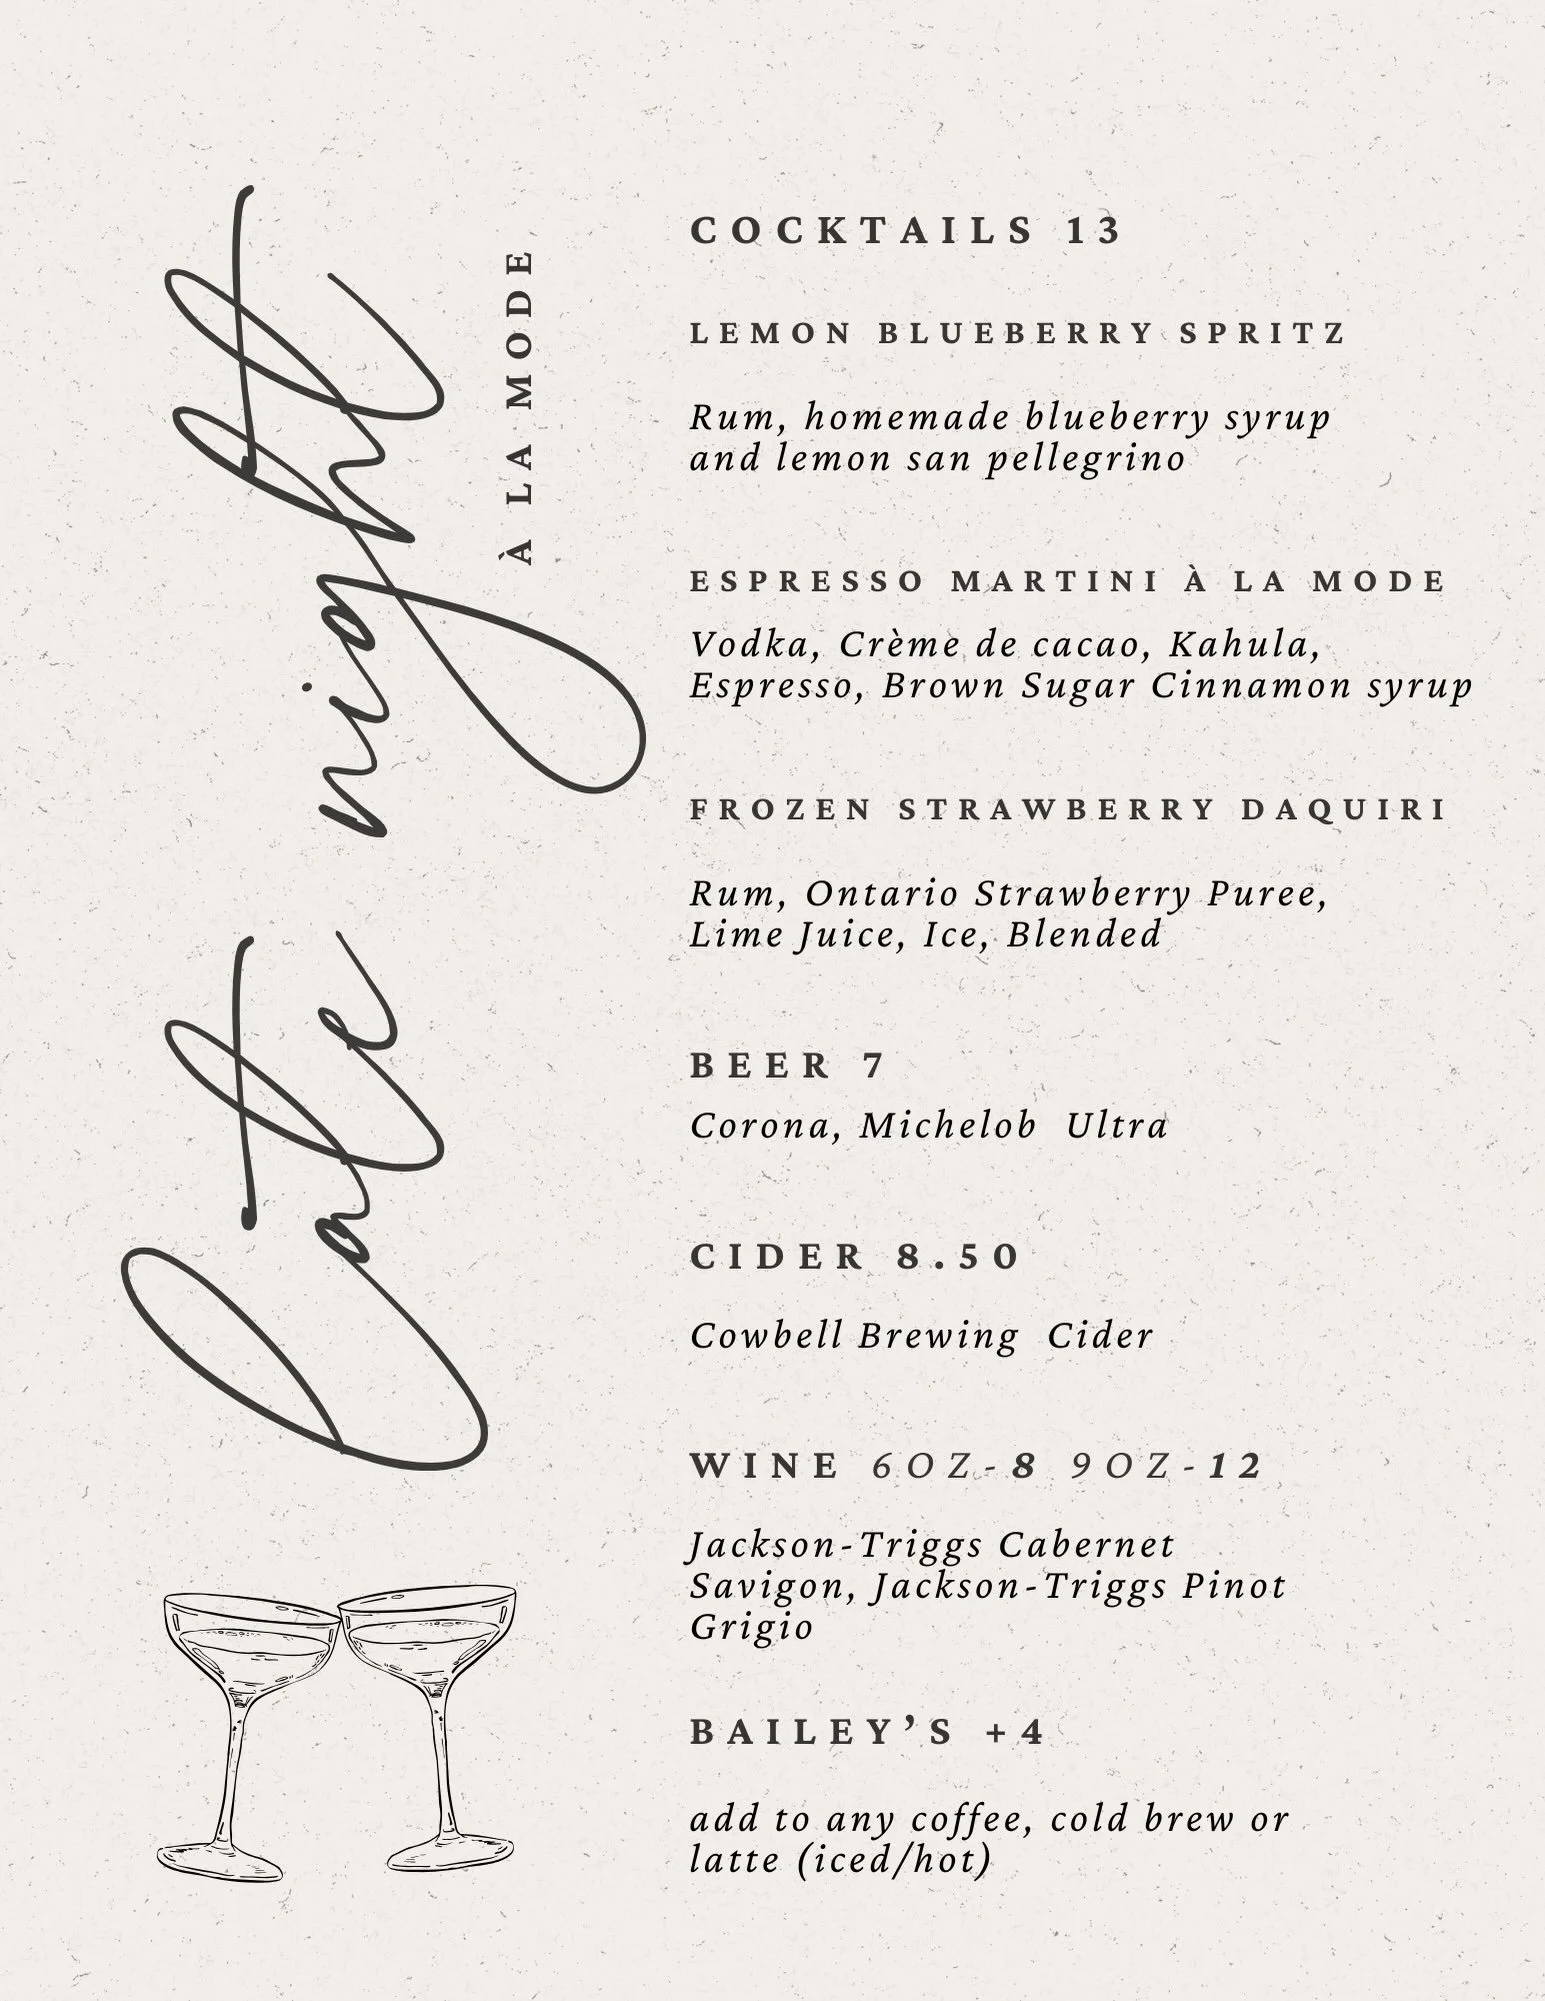 late night
À LA MODE
COCKTAILS 13
LEMON BLUEBERRY SPRITZ
Rum, homemade blueberry syrup
and lemon san pellegrino
ESPRESSO MARTINI À LA MODE
Vodka, Crème de cacao, Kahula,
Espresso, Brown Sugar Cinnamon syrup
FROZEN STRAWBERRY DAQUIRI
Rum, Ontario Strawberry Puree,
Lime Juice, Ice, Blended
BEER 7
Corona, Michelob Ultra
CIDER 8.50
Cowbell Brewing Cider
WINE 6OZ-8 9OZ-12
Jackson-Triggs Cabernet
Savigon, Jackson-Triggs Pinot
Grigio
BAILEY’S +4
add to any coffee, cold brew or
latte (iced/hot)